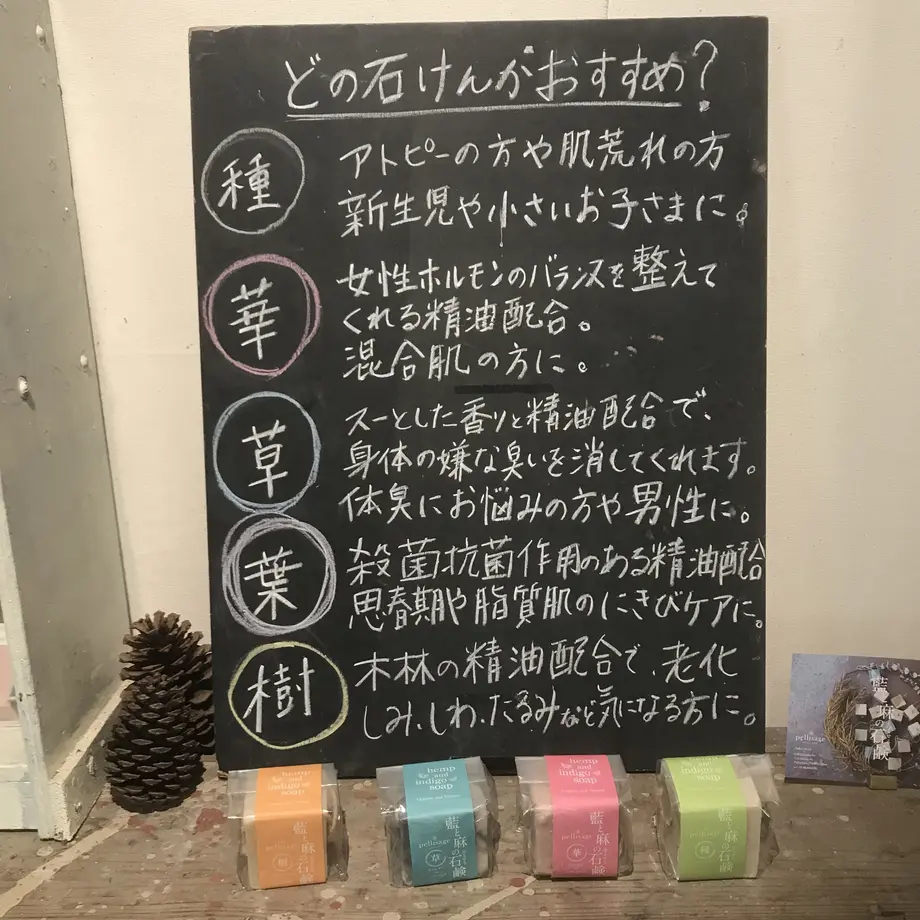 どの石けんがおすすめ?
種
アトピーの方や肌荒れの方
新生児や小さいお子さまに。
華
女性ホルモンのバランスを整えて
くれる精油配合。
混合肌の方に。
草
スーとした香りと精油配合で、
身体の嫌な臭いを消してくれます。
体臭にお悩みの方や男性に。
葉
殺菌抗菌作用のある精油配合
思春期や脂質肌のにきびケアに。
樹
木林の精油配合で、老化
しみ、しわ、たるみなど気になる方に。
hemp
and
indigo
soap
藍と麻の石鹸
pellisage
樹
hemp
and
indigo
soap
藍と麻の石鹸
pellisage
草
hemp
and
indigo
soap
藍と麻の石鹸
pellisage
華
hemp
and
indigo
soap
藍と麻の石鹸
pellisage
種
藍と麻の石鹸
pellisage